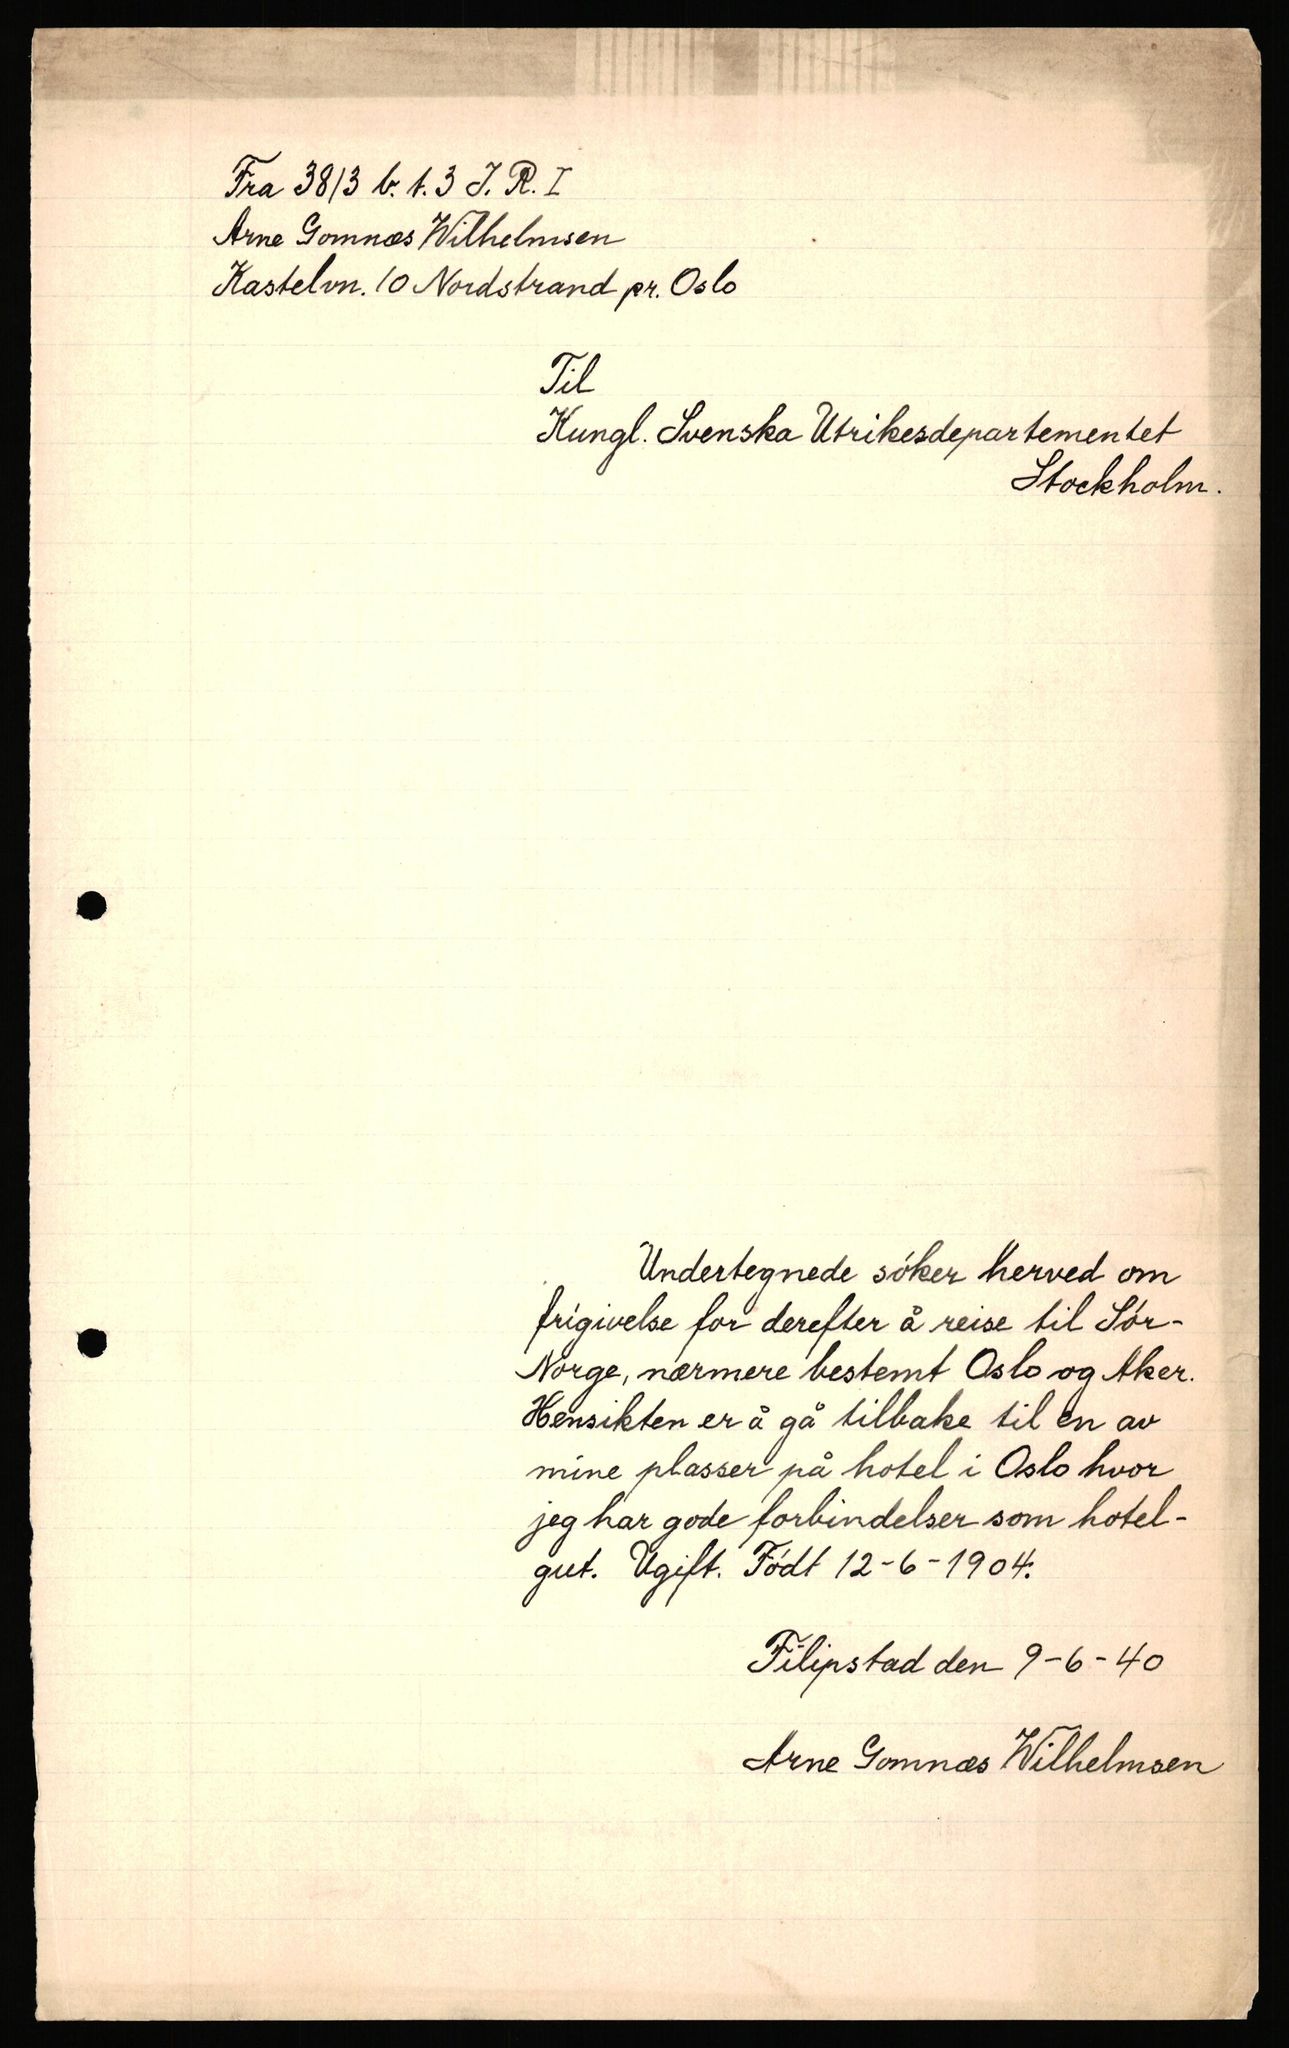 Fra 38/3 b. t. 3 J. R. I
Arne Gomnæs Wilhelmsen
Kastelvn. 10 Nordstrand pr. Oslo
Til
Kungl. Svenska Utrikesdepartementet
Stockholm.
Undertegnede søker herved om
frigivelse for derefter å reise til Sør-
Norge, nærmere bestemt Oslo og Aker.
Hensikten er å gå tilbake til en av
mine plasser på hotel i Oslo hvor
jeg har gode forbindelser som hotel-
gut. Ugift. Født 12-6-1904.
Filipstad den 9-6-40
Arne Gomnæs Wilhelmsen